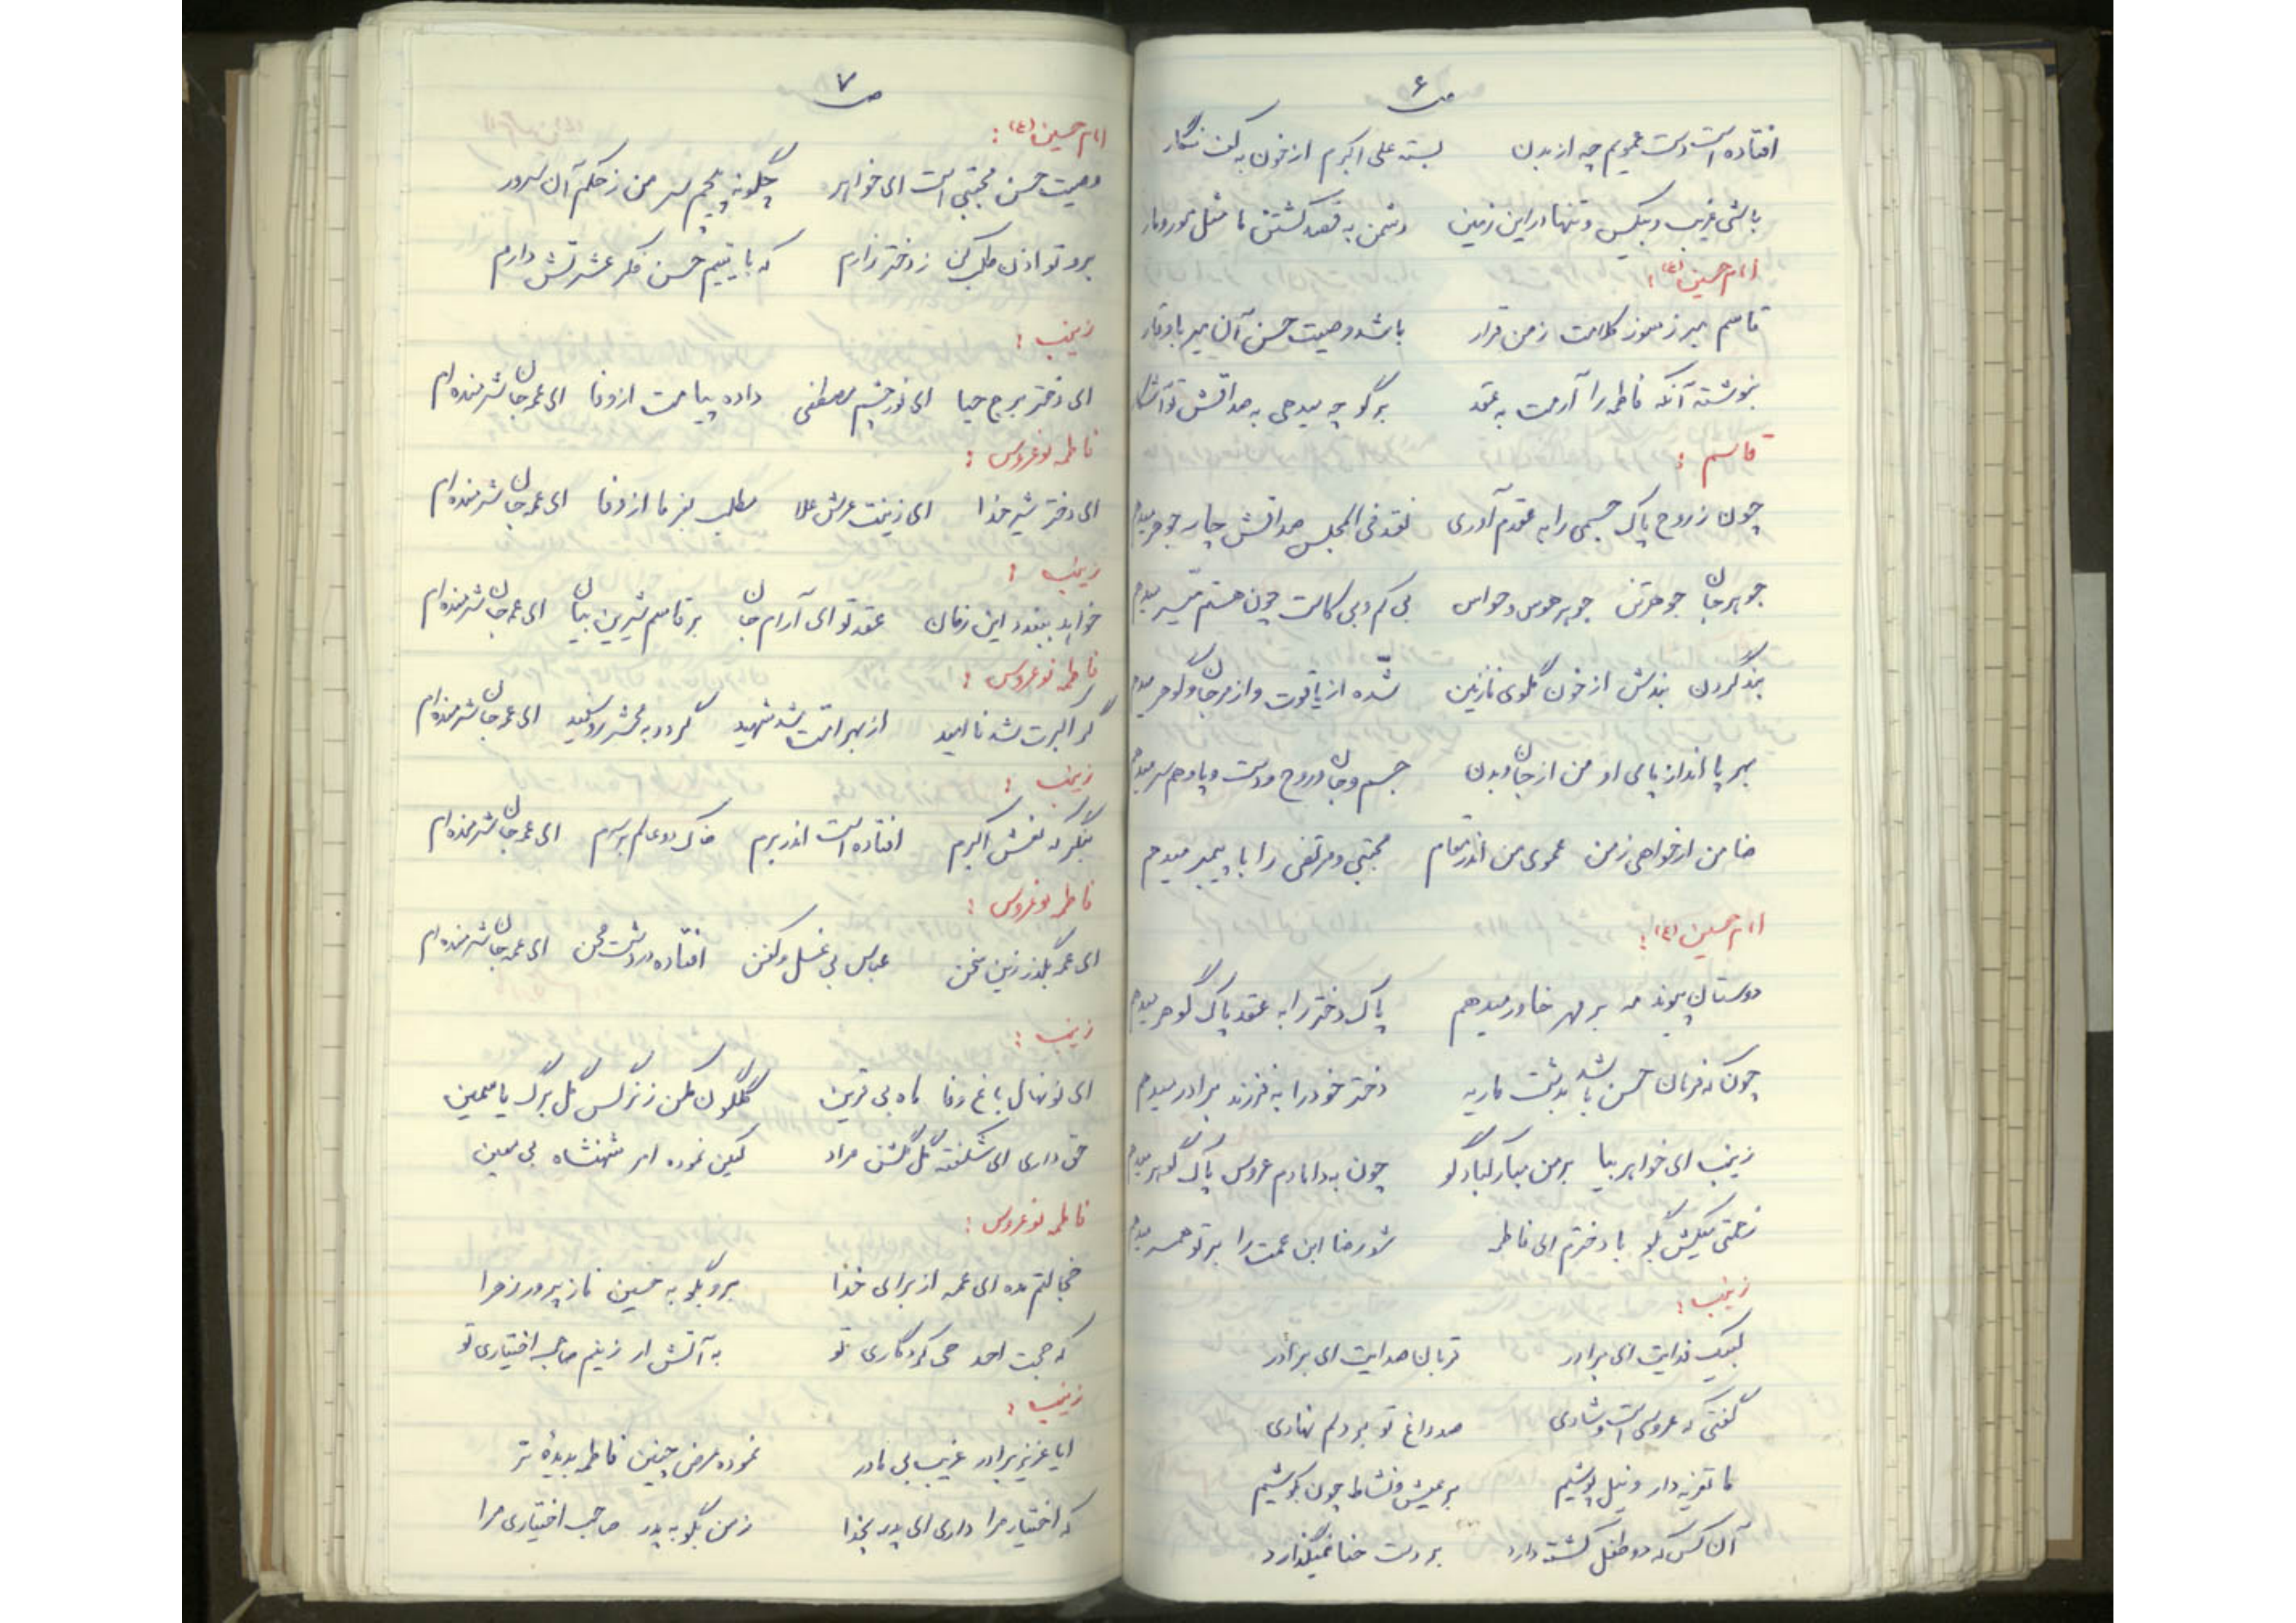 ص ۶
افتاده است دست عمویم چه از بدن    بسته علی اکبرم از خون به کف نگار
باشی غریب و بیکس و تنها در این زمین    دشمن به قصد کشتن ما مثل مور و مار
امام حسین (ع) :
قاسم مبر ز سوز کلامت ز من قرار    باشد وصیت حسن آن میر باوقار
بنوشته آنکه فاطمه را آرمت به عقد    برگو چه میدهی به صداقش تو آشکار
قاسم :
چون ز روح پاک جسمی را به عقدم آوری    نقد فی المجلس صداقش چار جوهر میدهم
جوهر جان جوهر تن جوهر هوس و حواس    بی کم و بی کاست چون هستم میسر میدهم
بند گردن بندش از خون گلوی نازنین    شده از یاقوت و از مرجان و گوهر میدهم
بهر پا انداز پای او من از جان و بدن    جسم و جان و روح و دست و پا و هم سر میدهم
ضامن ار خواهی ز من عموی من اندر مقام    مجتبی و مرتضی را با پیمبر میدهم
امام حسین (ع) :
دوستان پیوند مه بر مهر خاور میدهم    پاک دختر را به عقد پاک گوهر میدهم
چونکه فرمان حسن باشد بدشت ماریه    دختر خود را به فرزند برادر میدهم
زینب ای خواهر بیا بر من مبارکباد گو    چون به دامادم عروس پاک گوهر میدهم
بگو با دخترم ای فاطمه    شو رضا ابن عمت را بر تو همسر میدهم
زینب :
لبیک فدایت ای برادر    قربان صدایت ای برادر
گفتی که عروسی است و شادی    صد داغ تو بر دلم نهادی
ما تعزیه دار و نیل پوشیم    بر عیش و نشاط چون بکوشیم
آن کس که دو طفل کشته دارد    بر دست حنا نمیگذارد
ص ۷
امام حسین (ع) :
وصیت حسن مجتبی است ای خواهر    چگونه پیچم سر من ز حکم آن سرور
برو تو اذن طلب کن ز دختر زارم    که با یتیم حسن فکر عشرتش دارم
زینب :
ای دختر برج حیا    ای نور چشم مصطفی    داده پیامت از وفا    ای عمه جان شرمنده ام
فاطمه نو عروس :
ای دختر شیر خدا    ای زینت عرش علا    مطلب بفرما از وفا    ای عمه جان شرمنده ام
زینب :
خواهد ببندد این زمان    عقد تو ای آرام جان    بر قاسم شیرین بیان    ای عمه جان شرمنده ام
فاطمه نو عروس :
گر اکبرت شد ناامید    از بهر امت شد شهید    گردد به محشر روسفید    ای عمه جان شرمنده ام
زینب :
بنگر که نعش اکبرم    افتاده است اندر برم    خاک دو عالم بر سرم    ای عمه جان شرمنده ام
فاطمه نو عروس :
ای عمه بگذر زین سخن    عباس بی غسل و کفن    افتاده در دشت محن    ای عمه جان شرمنده ام
زینب :
ای نونهال باغ وفا ماه بی قرین    گلگون مکن ز نرگس گل برگ یاسمین
حق داری ای شکفته گل گلشن مراد    لیکن نموده امر شهنشاه بی معین
فاطمه نو عروس :
خجالتم مده ای عمه از برای خدا    برو بگو به حسین ناز پرور زهرا
که حجت احد حی کردگاری تو    به آتش ار زنیم صاحب اختیاری تو
زینب :
ایا عزیز برادر غریب بی مادر    نموده عرض چنین فاطمه بدیدۀ تر
که اختیار مرا داری ای پدر بخدا    ز من بگو به پدر صاحب اختیاری مرا